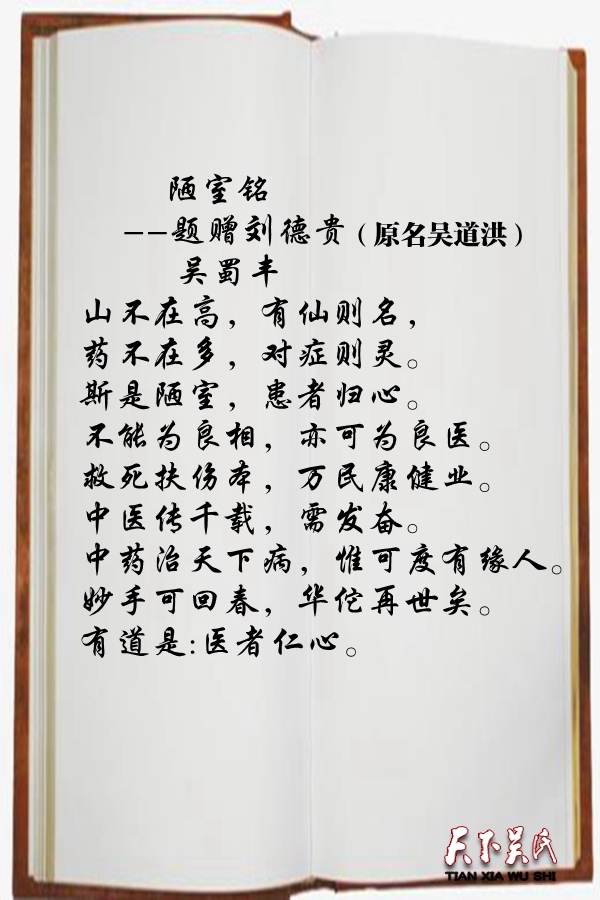 陋室铭
--题赠刘德贵（原名吴道洪）
吴蜀丰
山不在高，有仙则名，
药不在多，对症则灵。
斯是陋室，患者归心。
不能为良相，亦可为良医。
救死扶伤本，万民康健业。
中医传千载，需发奋。
中药治天下病，惟可度有缘人。
妙手可回春，华佗再世矣。
有道是:医者仁心。
天下吴氏
TIAN XIA WU SHI